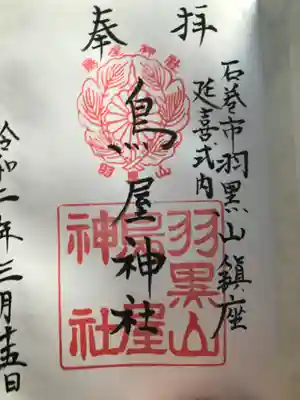 奉拝
石巻市羽黒山鎮座
延喜式内
鳥屋神社
令和二年三月十五日
鳥屋神社
羽黒山
羽黒山
鳥屋
神社